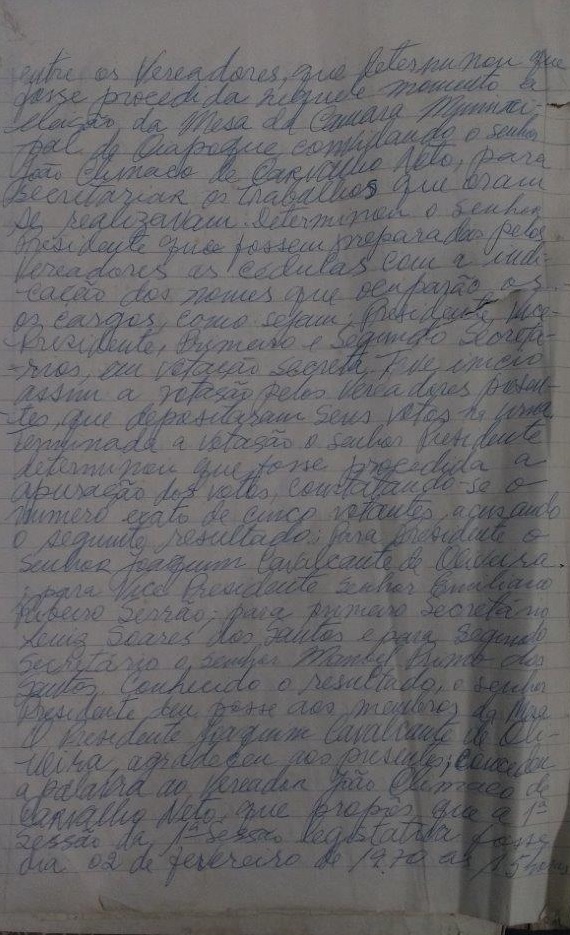 entre os Vereadores, que determinou que
fosse procedida naquele momento a
eleição da Mesa da Camara Munici-
pal de Oiapoque convidando o senhor
João Climaco de Carvalho Neto, para
secretariar os trabalhos que oram
se realizavam. Determinou o Senhor
Presidente que fossem preparadas pelos
Vereadores as cedulas com a indi-
cação dos nomes que ocuparão os
os cargos, como sejam; Presidente, Vice-
Presidente, Primeiro e Segundo Secretá-
-rios, em votação secreta. Teve inicio
assim a votação pelos Vereadores presen-
-tes, que depositaram seus votos na urna
Terminada a votação o senhor Presidente
determinou que fosse procedida a
apuração dos votos, constatando-se o
numero exato de cinco votantes, acusando
o seguinte resultado: Para Presidente o
Senhor Joaquim Cavalcante de Oliveira
; para Vice Presidente Senhor Emiliano
Ribeiro Serrão; para primeiro Secretário
Luiz Soares dos Santos e para Segundo
Secretário o Senhor Manoel Primo dos
Santos. Conhecido o resultado, o senhor
Presidente deu posse aos membros da Mesa
O Presidente Joaquim Cavalcante de Oli-
veira, agradeceu aos presentes; concedeu
a palavra ao Vereador João Climaco de
Carvalho Neto, que propôs que a 1ª
Sessão da 1ª sessão legislativa fosse
dia 02 de fevereiro de 1970 as 15 horas